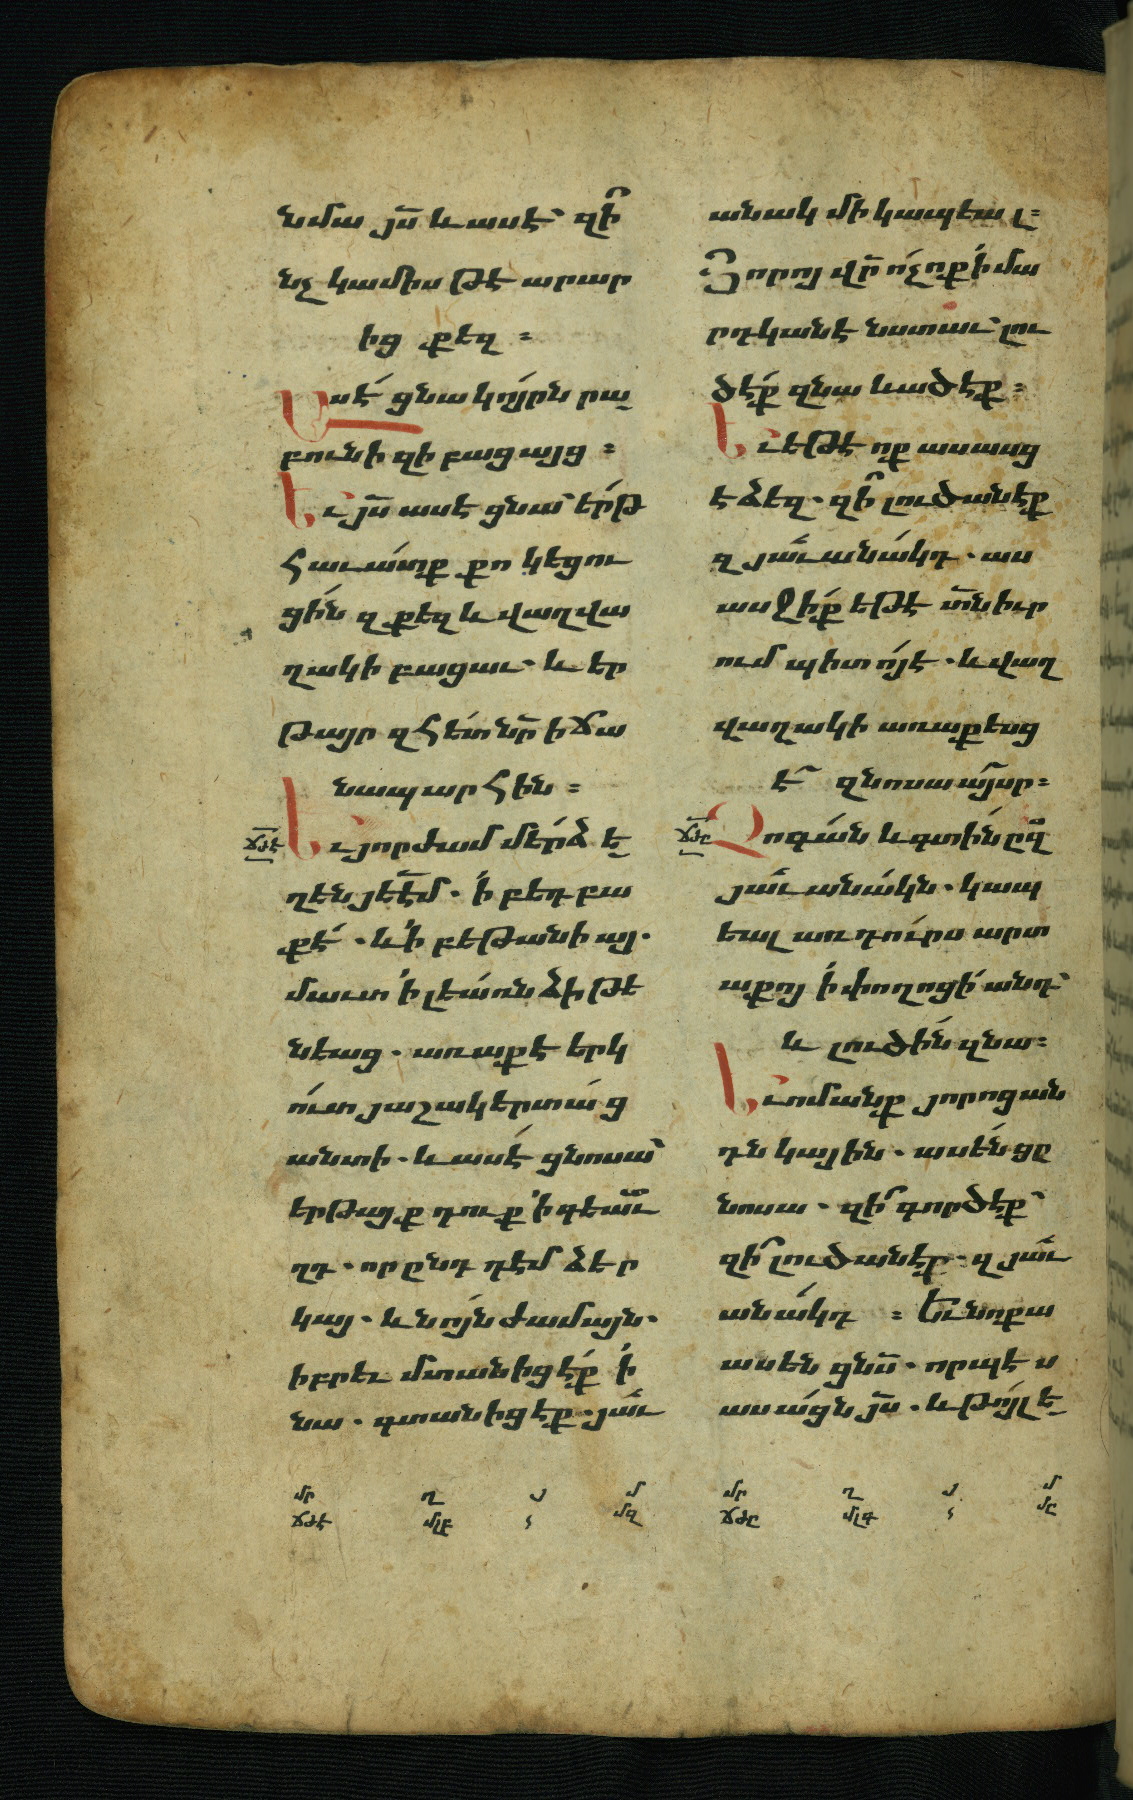 նմա յս̃ և ասէ՝ զի՞
նչ կամիս թէ արար
ից քեզ ։
Ասէ́ ցնա կոյ́րն րա
բունի զի բացայց ։
Եւ յս̃ ասէ ցնա՝ ե́րթ
հաւա́տք քո կեցու
ցի́ն զքեզ և վաղվա
ղակի բացաւ· և եր
թայր զհե́տ նր̃ ի ճա
նապարհին ։
ճժէ
Եւ յորժամ մե́րձ ե
ղեն յեէ̃մ · ի́ բեդբա
քէ́ · և ՚ի բեթանի այ·
մաւտ ՚ի լեա́ռն ձիթե
նեաց · առաքէ երկ
ո́ւս յաշակերտա́ց
անտի · և ասէ́ ցնոսա՝
երթայք դուք ՚ի գեաւ̃
ղդ · որ ընդ դէմ ձեր
կայ · և նո́յն ժամայն ·
իբրեւ մտանիցէ́ք ի́
նա · գտանիցէք · յաւ̃
մր ղ յ մ
ճժէ մլբ ՟ մզ
անակ մի կապեալ ։
Յորոյ վր̃ ո́չ ոք ի́ մա
րդկանէ նստաւ՝ լու
ծէ́ք զնա և ածէք ։
Եւ եթէ ոք ասասց
է ձեզ · զի՞ լուծանէք
զյաւ̃անա́կդ · աս
ասջի́ք եթէ տն̃ իւր
ում պիտո́յ է · և վաղ
վաղակի առաքեսց
է՞ զնոսա այ̃սր ։
ճժը
Չոգա́ն և գտի́ն ըզ
յաւ̃անա́կն · կապ
եալ առ դո́ւրս արտ
աքոյ ի́ փողոցի́ անդ՝
և լուծի́ն զնա ։
Եւ ոմանք յորոց ան
դն կային · ասե́ն ցը
նոսա · զի՞ գործէք՝
զի՞ լուծանէք · զյաւ̃
անա́կդ ։ Եւ նոքա
ասեն ցնս̃ · որպէս
ասա́ցն յս̃ · և թո́յլ ե
մր ղ յ մ
ճժը մլգ ՟ մը